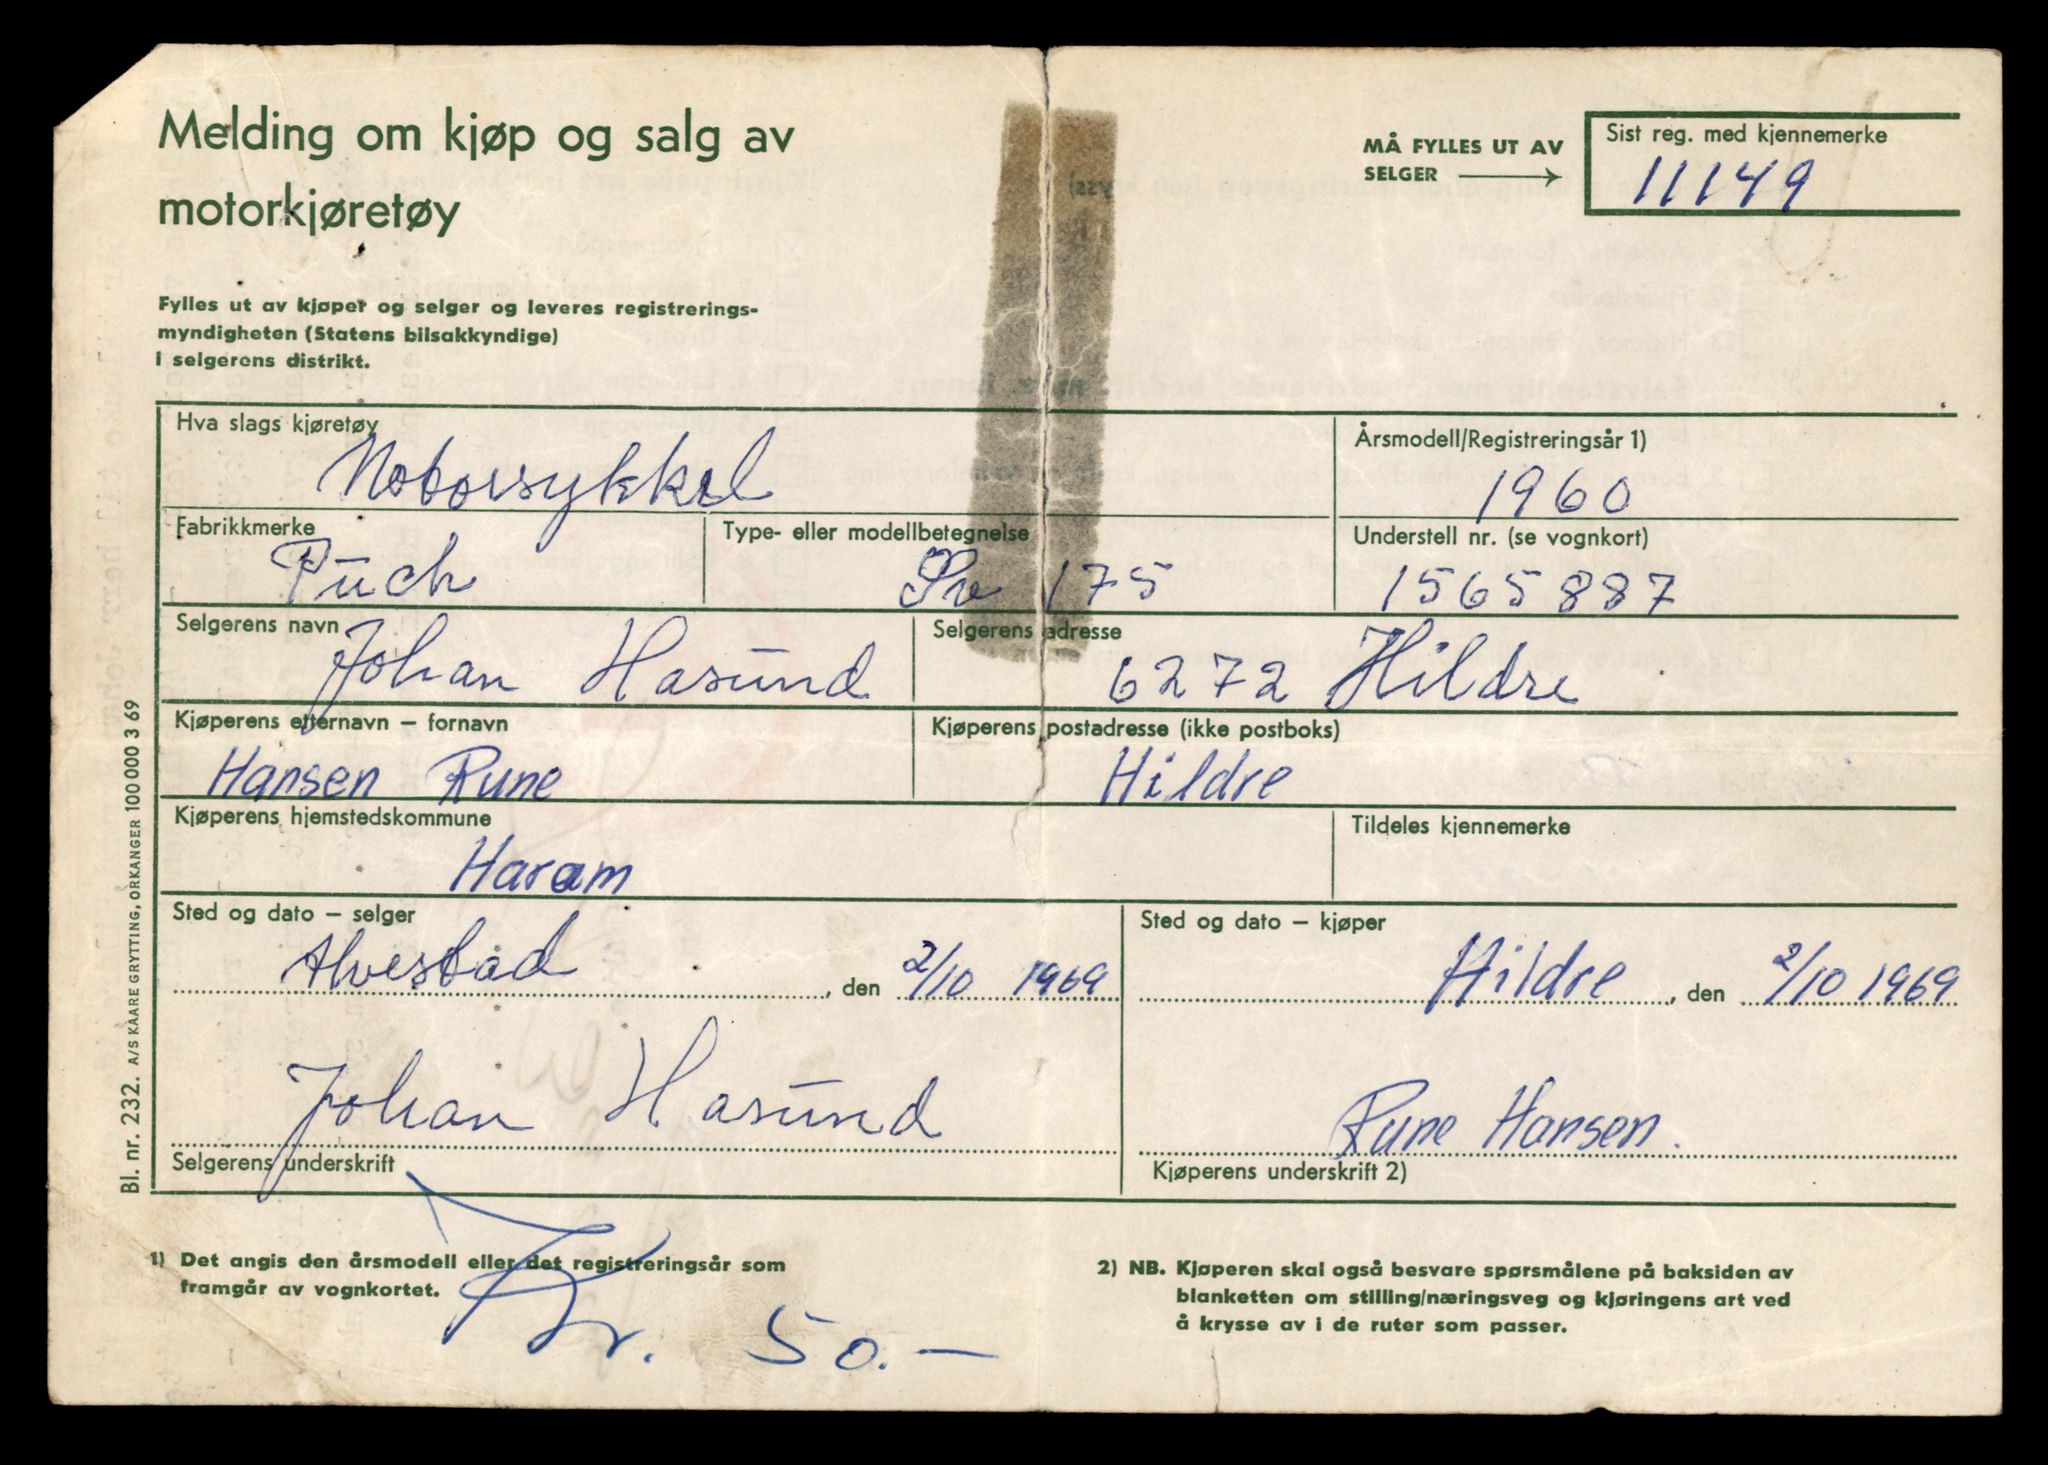 Melding om kjøp og salg av
motorkjøretøy
MÅ FYLLES UT AV
SELGER
Sist reg. med kjennemerke
11149
Fylles ut av kjøper og selger og leveres registrerings-
myndigheten (Statens bilsakkyndige)
i selgerens distrikt.
Hva slags kjøretøy
Motorsykkel
Årsmodell/Registreringsår 1)
1960
Fabrikkmerke
Puch
Type- eller modellbetegnelse
Sv 175
Understell nr. (se vognkort)
1565887
Selgerens navn
Johan Hasund
Selgerens adresse
6272 Hildre
Kjøperens etternavn – fornavn
Hansen Rune
Kjøperens postadresse (ikke postboks)
Hildre
Kjøperens hjemstedskommune
Haram
Tildeles kjennemerke
Sted og dato – selger
Alvestad, den 2/10 1969
Sted og dato – kjøper
Hildre, den 2/10 1969
Johan Hasund
Selgerens underskrift
Rune Hansen.
Kjøperens underskrift 2)
1) Det angis den årsmodell eller det registreringsår som
framgår av vognkortet.
Kr. 50.—
2) NB. Kjøperen skal også besvare spørsmålene på baksiden av
blanketten om stilling/næringsveg og kjøringens art ved
å krysse av i de ruter som passer.
Bl. nr. 232. A/S KAARE GRYTTING, ORKANGER 100 000 3 69